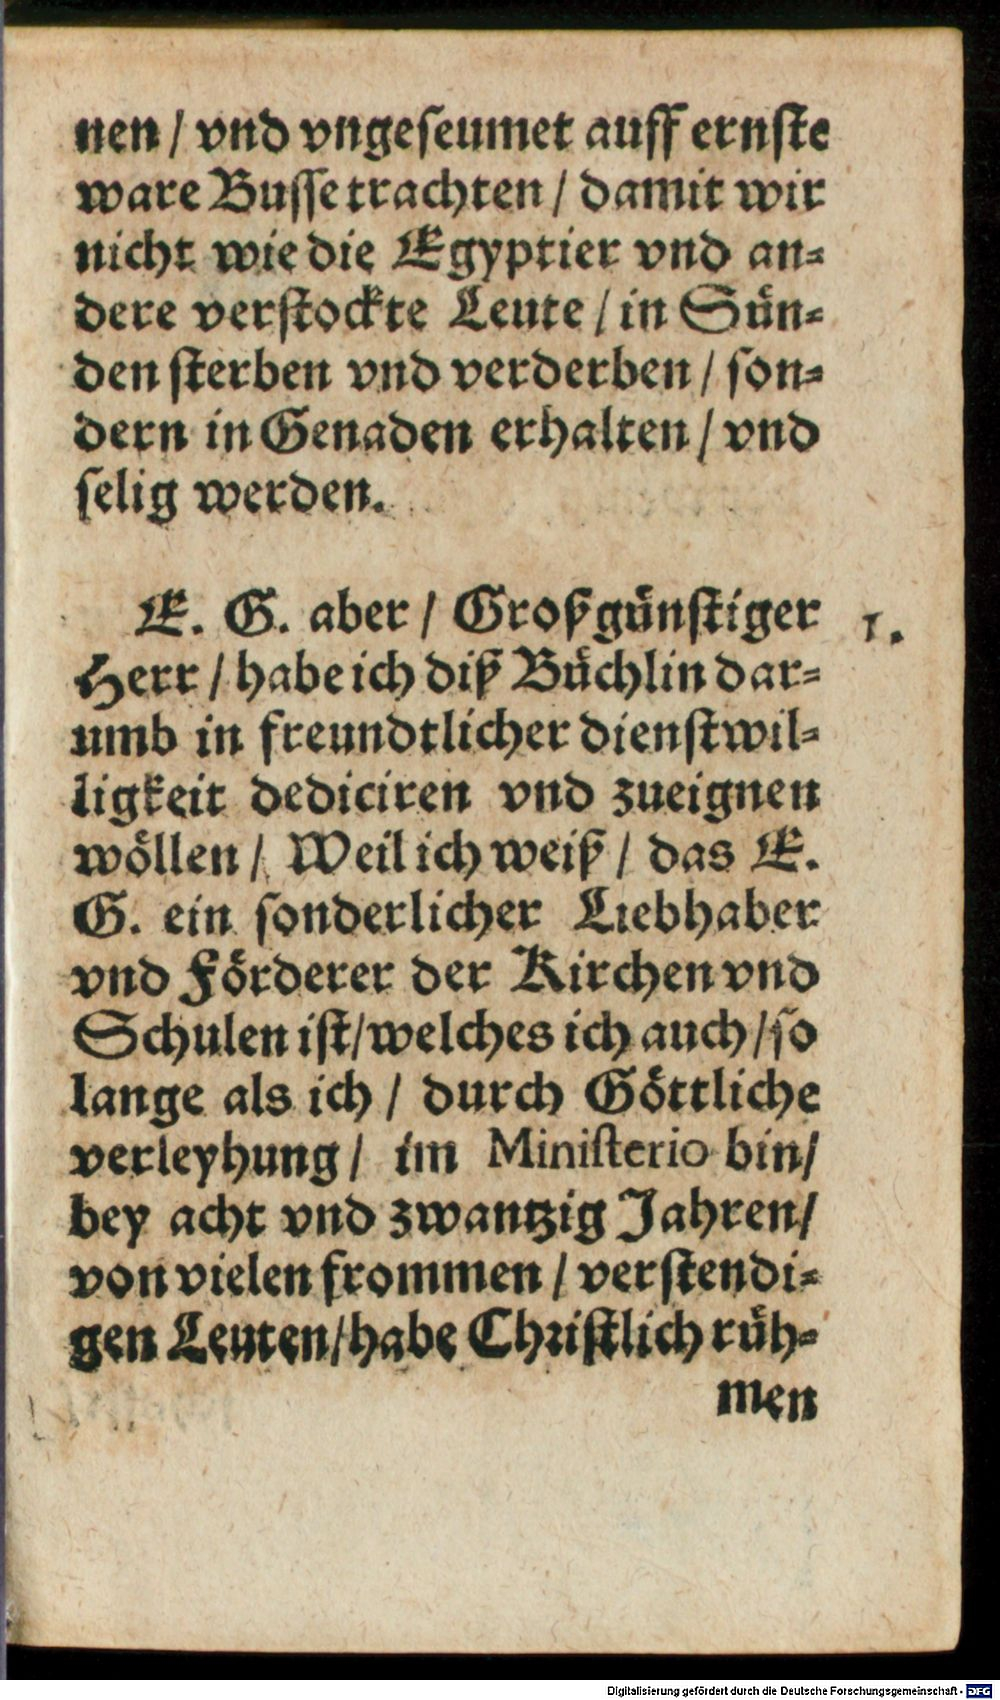 nen / vnd vngeseumet auff ernste
ware Busse trachten / damit wir
nicht wie die Egyptier vnd an-
dere verstockte Leute / in Sün-
den sterben vnd verderben / son-
dern in Genaden erhalten / vnd
selig werden.
E. G. aber / Großgünstiger
1.
Herr / habe ich diß Büchlin dar-
umb in freundtlicher dienstwil-
ligkeit dediciren vnd zueignen
wöllen / Weil ich weiß / das E.
G. ein sonderlicher Liebhaber
vnd Förderer der Kirchen vnd
Schulen ist / welches ich auch / so
lange als ich / durch Göttliche
verleyhung / im Ministerio bin /
bey acht vnd zwantzig Jahren /
von vielen frommen / verstendi-
gen Leuten / habe Christlich rüh-
men
Digitalisierung gefördert durch die Deutsche Forschungsgemeinschaft - DFG